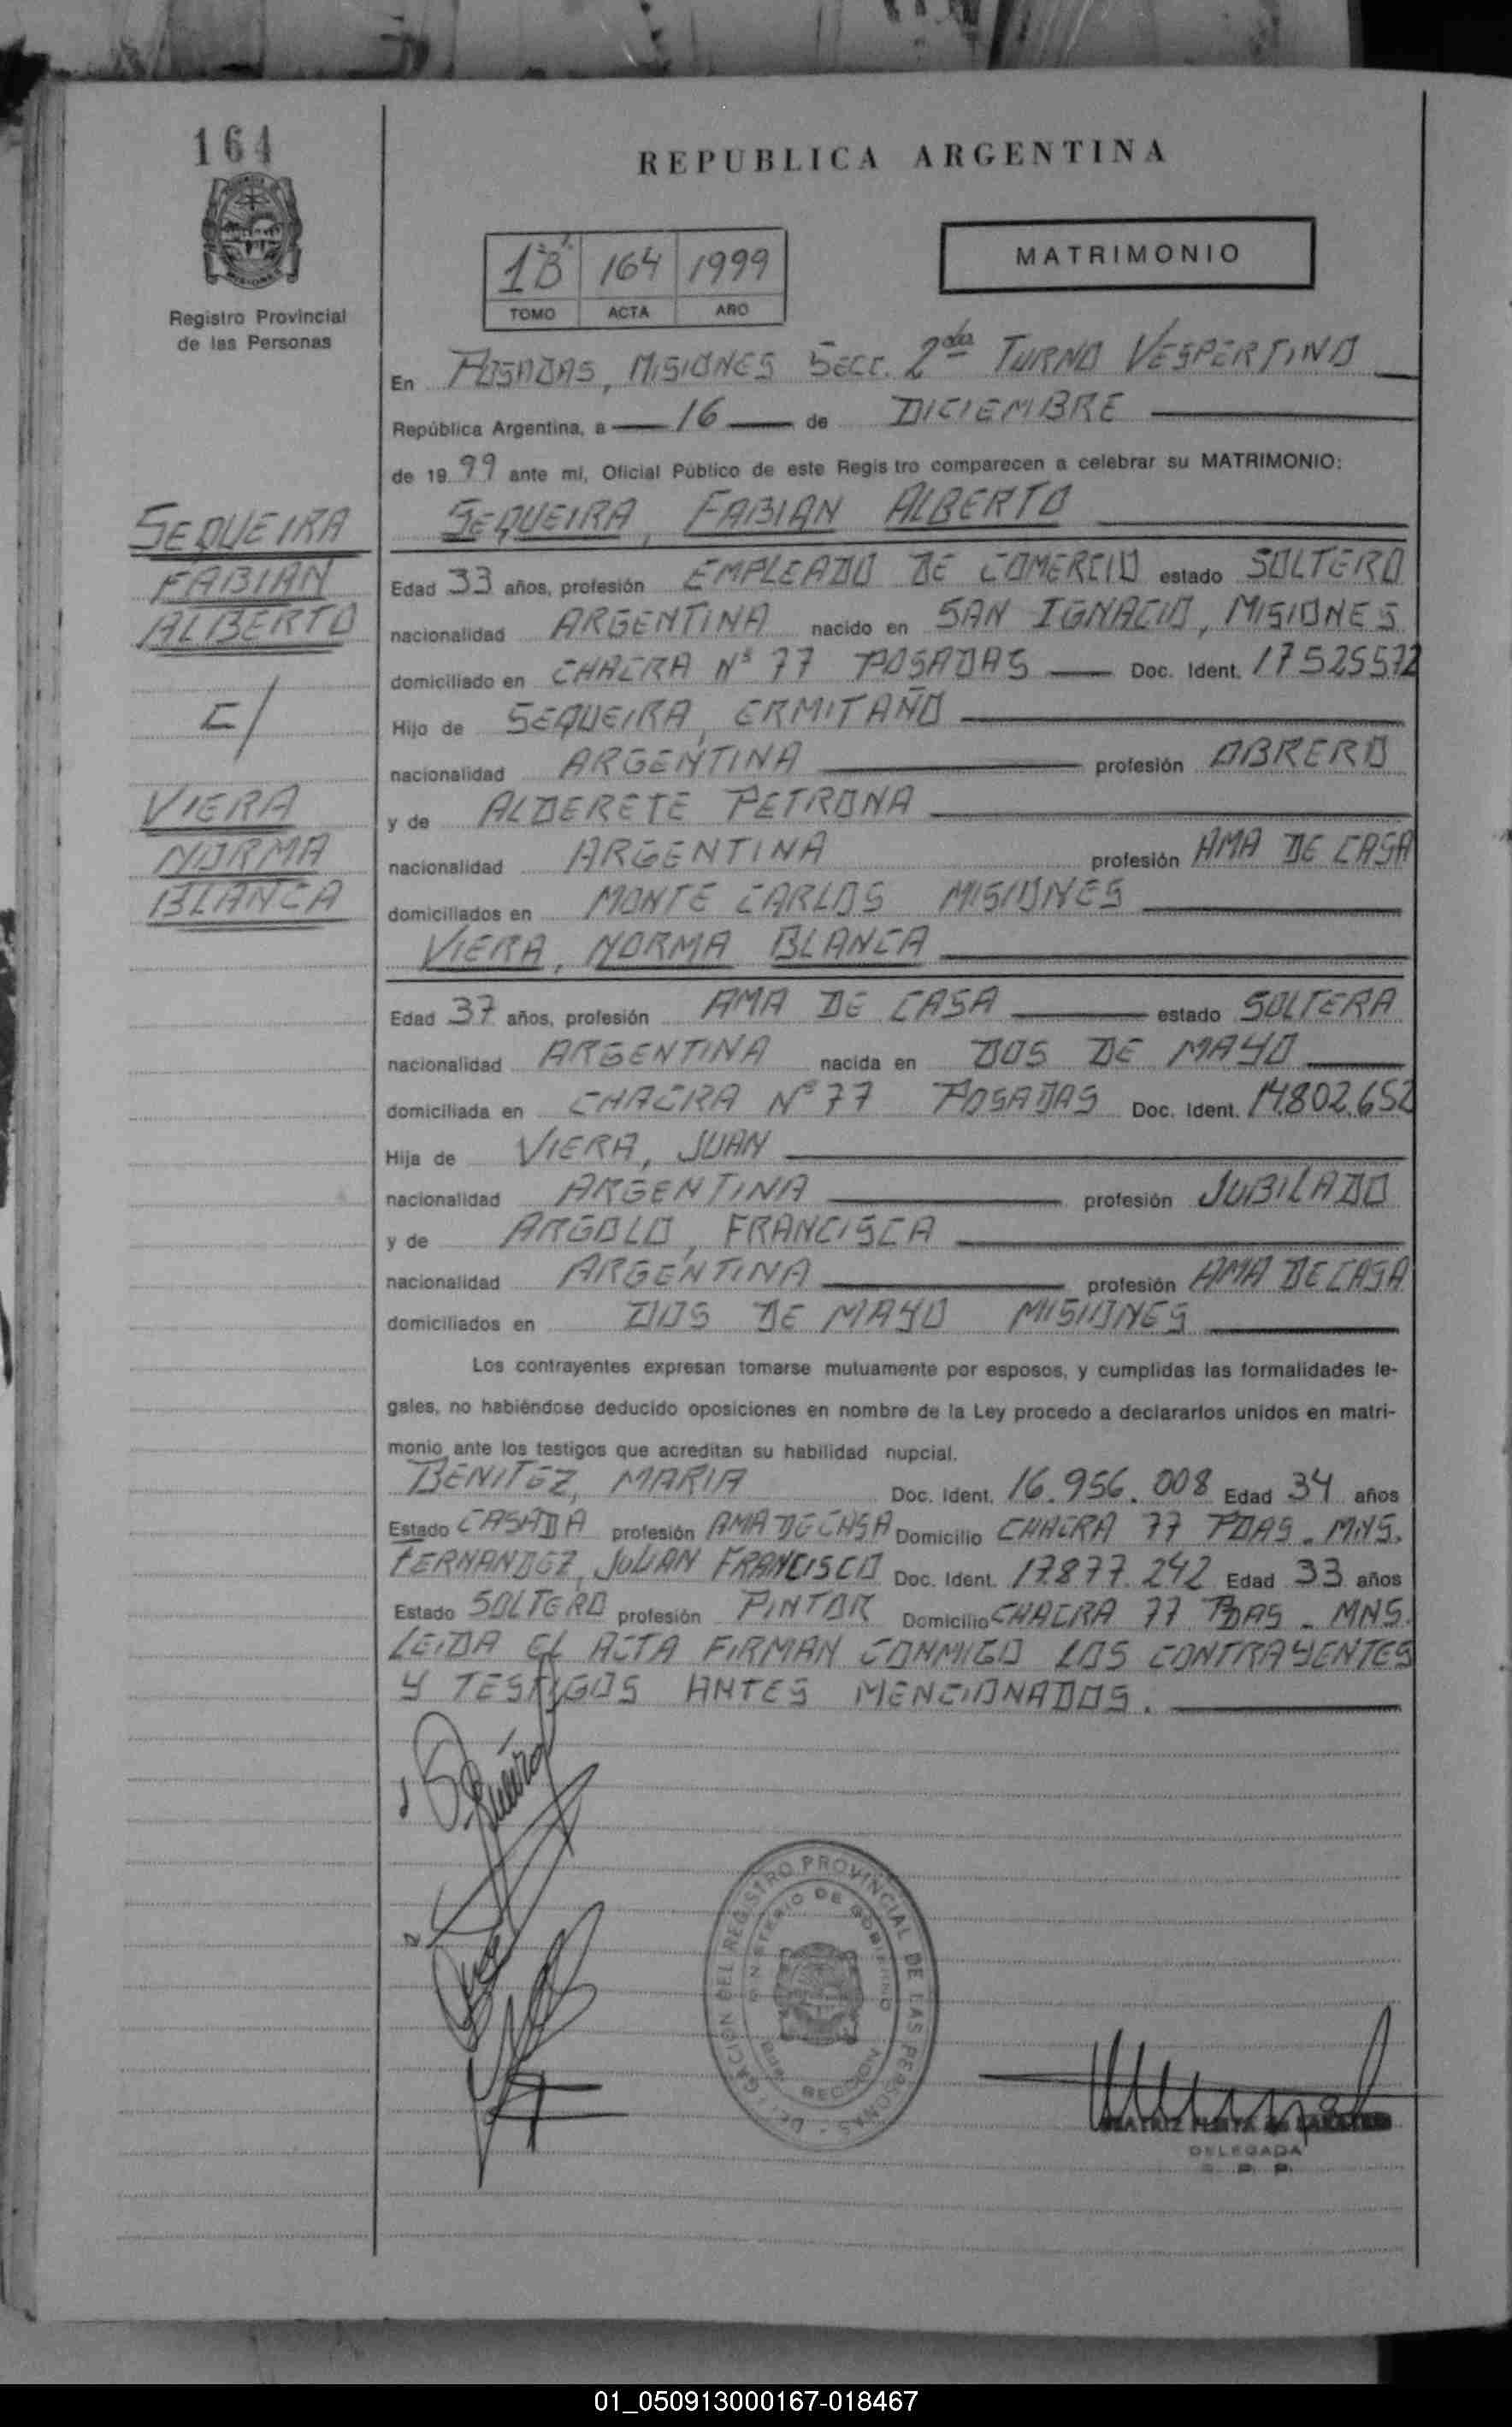 164
REPUBLICA ARGENTINA
Registro Provincial
de las Personas
1B 164 1999
TOMO ACTA AÑO
MATRIMONIO
En POSADAS, MISIONES SECC. 2da TURNO VESPERTINO
República Argentina, a 16 de DICIEMBRE
de 19 99 ante mi, Oficial Público de este Regis tro comparecen a celebrar su MATRIMONIO:
SEQUEIRA, FABIAN ALBERTO
SEQUEIRA
FABIAN
ALBERTO
C/
VIERA
NORMA
BLANCA
Edad 33 años, profesión EMPLEADO DE COMERCIO estado SOLTERO
nacionalidad ARGENTINA nacido en SAN IGNACIO, MISIONES
domiciliado en CHACRA Nº 77 POSADAS Doc. Ident. 17525572
Hijo de SEQUEIRA, ERMITAÑO
nacionalidad ARGENTINA profesión OBRERO
y de ALDERETE PETRONA
nacionalidad ARGENTINA profesión AMA DE CASA
domiciliados en MONTE CARLOS MISIONES
VIERA, NORMA BLANCA
Edad 37 años, profesión AMA DE CASA estado SOLTERA
nacionalidad ARGENTINA nacida en DOS DE MAYO
domiciliada en CHACRA Nº 77 POSADAS Doc. Ident. 14802.652
Hija de VIERA, JUAN
nacionalidad ARGENTINA profesión JUBILADO
y de ARGOLO, FRANCISCA
nacionalidad ARGENTINA profesión AMA DE CASA
domiciliados en DOS DE MAYO MISIONES
Los contrayentes expresan tomarse mutuamente por esposos, y cumplidas las formalidades le-
gales, no habiéndose deducido oposiciones en nombre de la Ley procedo a declararlos unidos en matri-
monio ante los testigos que acreditan su habilidad nupcial.
BENITEZ, MARIA Doc. Ident. 16.956.008 Edad 34 años
Estado CASADA profesión AMA DE CASA Domicilio CHACRA 77 PDAS. MNS.
FERNANDEZ, JULIAN FRANCISCO Doc. Ident. 17877.242 Edad 33 años
Estado SOLTERO profesión PINTOR Domicilio CHACRA 77 PDAS - MNS.
LEIDA EL ACTA FIRMAN CONMIGO LOS CONTRAYENTES
Y TESTIGOS ANTES MENCIONADOS.
DELEGACION DEL REGISTRO PROVINCIAL DE LAS PERSONAS
MINISTERIO DE GOBIERNO
SECCION
BEATRIZ
DELEGADA
01_050913000167-018467